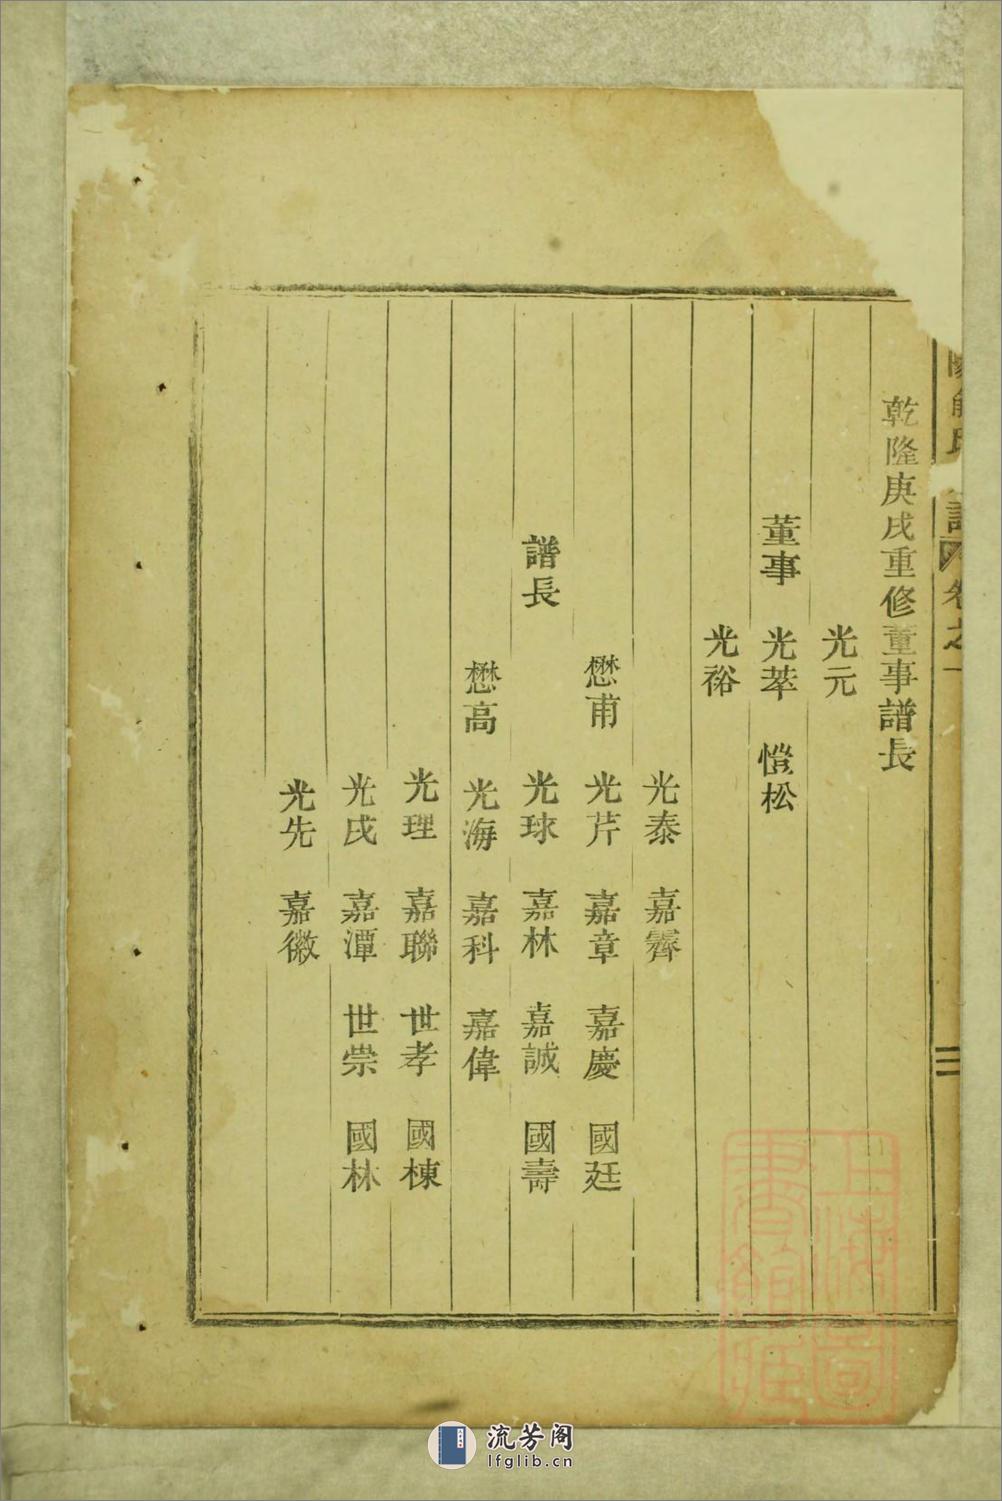 熊氏 譜 卷之一
三
乾隆庚戌重修董事譜長
光元
董事 光萃 愷松
光裕
光泰 嘉霽
懋甫 光芹 嘉章 嘉慶 國廷
譜長 光球 嘉林 嘉誠 國壽
懋高 光海 嘉科 嘉偉
光理 嘉聯 世孝 國棟
光戌 嘉潭 世崇 國林
光先 嘉徽
上海圖書館藏
流芳阁
lfglib.cn